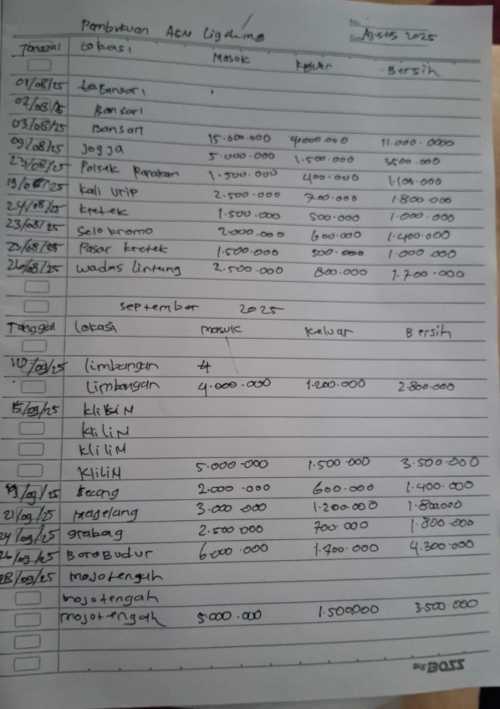 Pembukuan AGN Liganing
Agsts 2025
Tanggal Lokasi Masuk Keluar Bersih
01/08/25
02/08/25 Bansari
03/08/25 Bansari 15.000.000 4000 000 11.000.0000
09/08/25 Jogja 5.000.000 1.500.000 3500.000
23/08/25 Polsek 1.500.000 400.000 1.100.000
Kali urip 2.500.000 700.000 1.800.000
24/08/25 kretek 1.500.000 500.000 1.000.000
23/08/25 Selopromo 2.000.000 600.000 1.400.000
25/08/25 Pasar kretek 1.500.000 500.000 1.000 000
26/08/25 wadas lintang 2.500.000 800.000 1.700.000
september 2025
Tanggal Lokasi masuk Keluar Bersih
limbangan 4
Limbangan 4.000.000 1.200.000 2.800.000
15/09/25
KliliM
KliliM
KliliM 5.000.000 1.500.000 3.500.000
19/09/25 Secang 2.000.000 600.000 1.400.000
21/09/25 magelang 3.000.000 1.200.000 1.800.000
24/09/25 grabag 2.500 000 700 000 1.800 000
26/09/25 Borobudur 6.000.000 1.700.000 4.300.000
28/09/25 mojotengah
mojotengah
mojotengah 5.000.000 1.500000 3.500.000
BOZZ